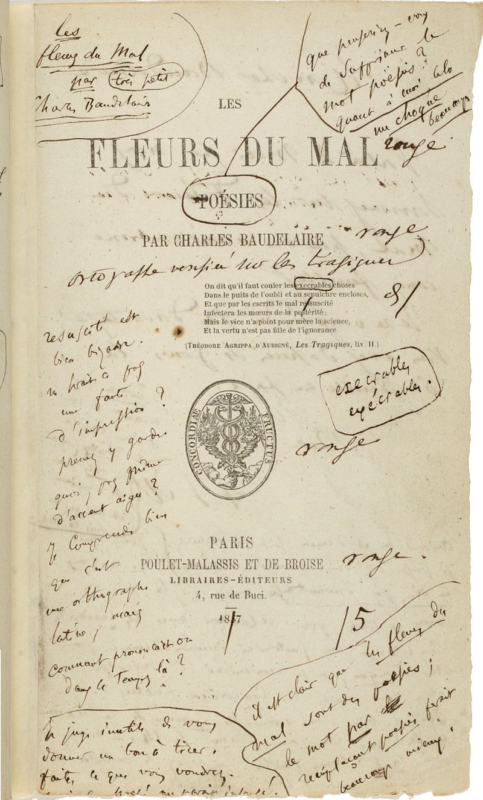 les
fleurs du Mal
par très petit
Charles Baudelaire
que penseriez-vous
de supprimer le
mot poésies ?
quant à moi cela
me choque
beaucoup
LES
FLEURS DU MAL
rouge
POÉSIES
PAR CHARLES BAUDELAIRE
rouge
ortographe vérifiée sur les tragiques
On dit qu'il faut couler les execrables choses
Dans le puits de l'oubli et au sepulchre encloses,
Et que par les escrits le mal resuscité
Infectera les mœurs de la postérité;
Mais le vice n'a point pour mère la science,
Et la vertu n'est pas fille de l'ignorance
(THÉODORE AGRIPPA D'AUBIGNÉ, Les Tragiques, liv. II.)
resuscité est
bien bizarre.
une faute
d'impression ?
prenez y garde
quoi, pas même
d'accent aigu ?
je comprends bien
que c'est
une orthographe
latine, mais
comment prononçait-on
dans le temps là ?
execrables
exécrables.
CONCORDIÆ FRUCTUS
rouge
PARIS
POULET-MALASSIS ET DE BROISE
rouge.
LIBRAIRES-ÉDITEURS
4, rue de Buci.
1857
5
il est clair que les fleurs du
mal sont des poésies ;
le mot par
remplaçant poésies ferait
beaucoup mieux.
je juge inutile de vous
donner un bon à tirer.
faites ce que vous voudrez.